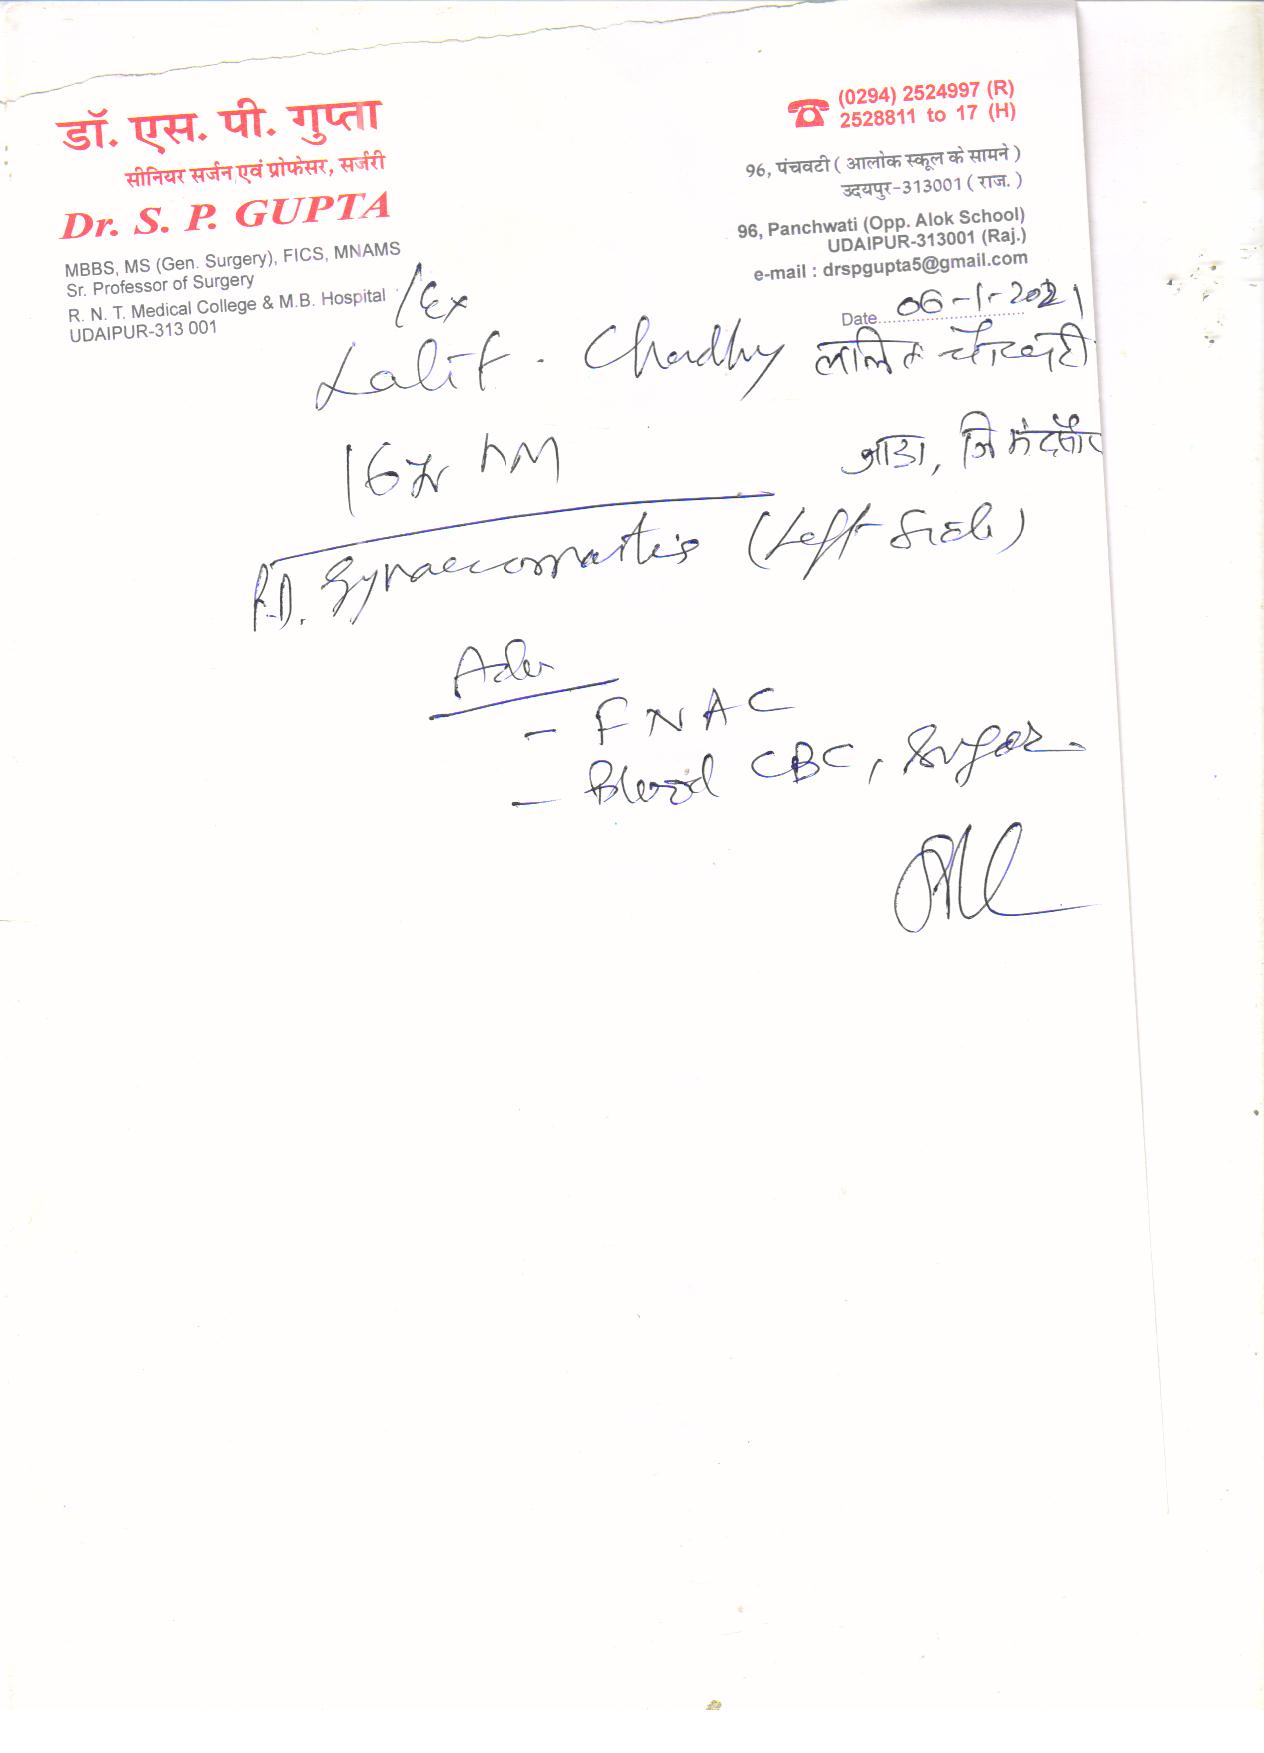 डॉ. एस. पी. गुप्ता
सीनियर सर्जन एवं प्रोफेसर, सर्जरी
Dr. S. P. GUPTA
MBBS, MS (Gen. Surgery), FICS, MNAMS
Sr. Professor of Surgery
R. N. T. Medical College & M.B. Hospital
UDAIPUR-313 001
(0294) 2524997 (R)
2528811 to 17 (H)
96, पंचवटी ( आलोक स्कूल के सामने )
उदयपुर-313001 ( राज. )
96, Panchwati (Opp. Alok School)
UDAIPUR-313001 (Raj.)
e-mail : drspgupta5@gmail.com
Date 06-1-2021
Lalit
16yr
जि मंदसौर
Gynaecomastia (Left side)
Adv
- FNAC
- Blood CBC, Sugar